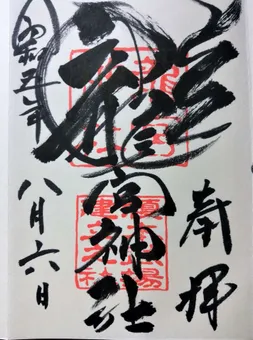 奉拝
龍宮神社
令和五年
八月六日